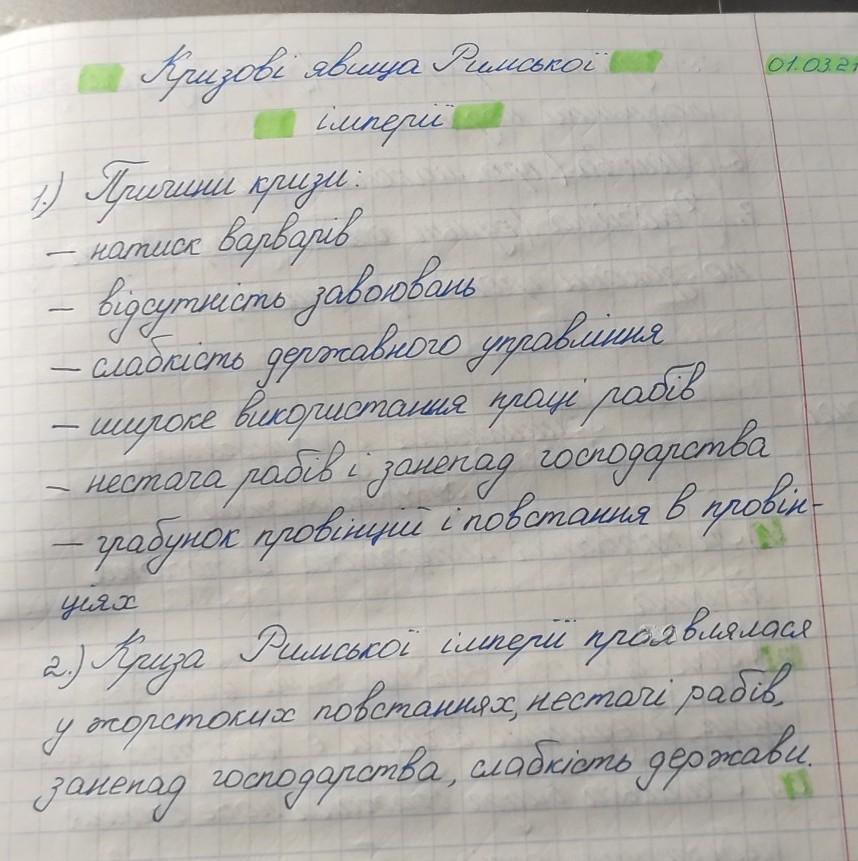 Кризові явища Римської
01.03.21
імперії
1.) Причини кризи:
— натиск варварів
— відсутність завоювань
— слабкість державного управління
— широке використання праці рабів
— нестача рабів і занепад господарства
— грабунок провінцій і повстання в провін-
ціях
2.) Криза Римської імперії проявлялася
у жорстоких повстаннях, нестачі рабів,
занепад господарства, слабкість держави.